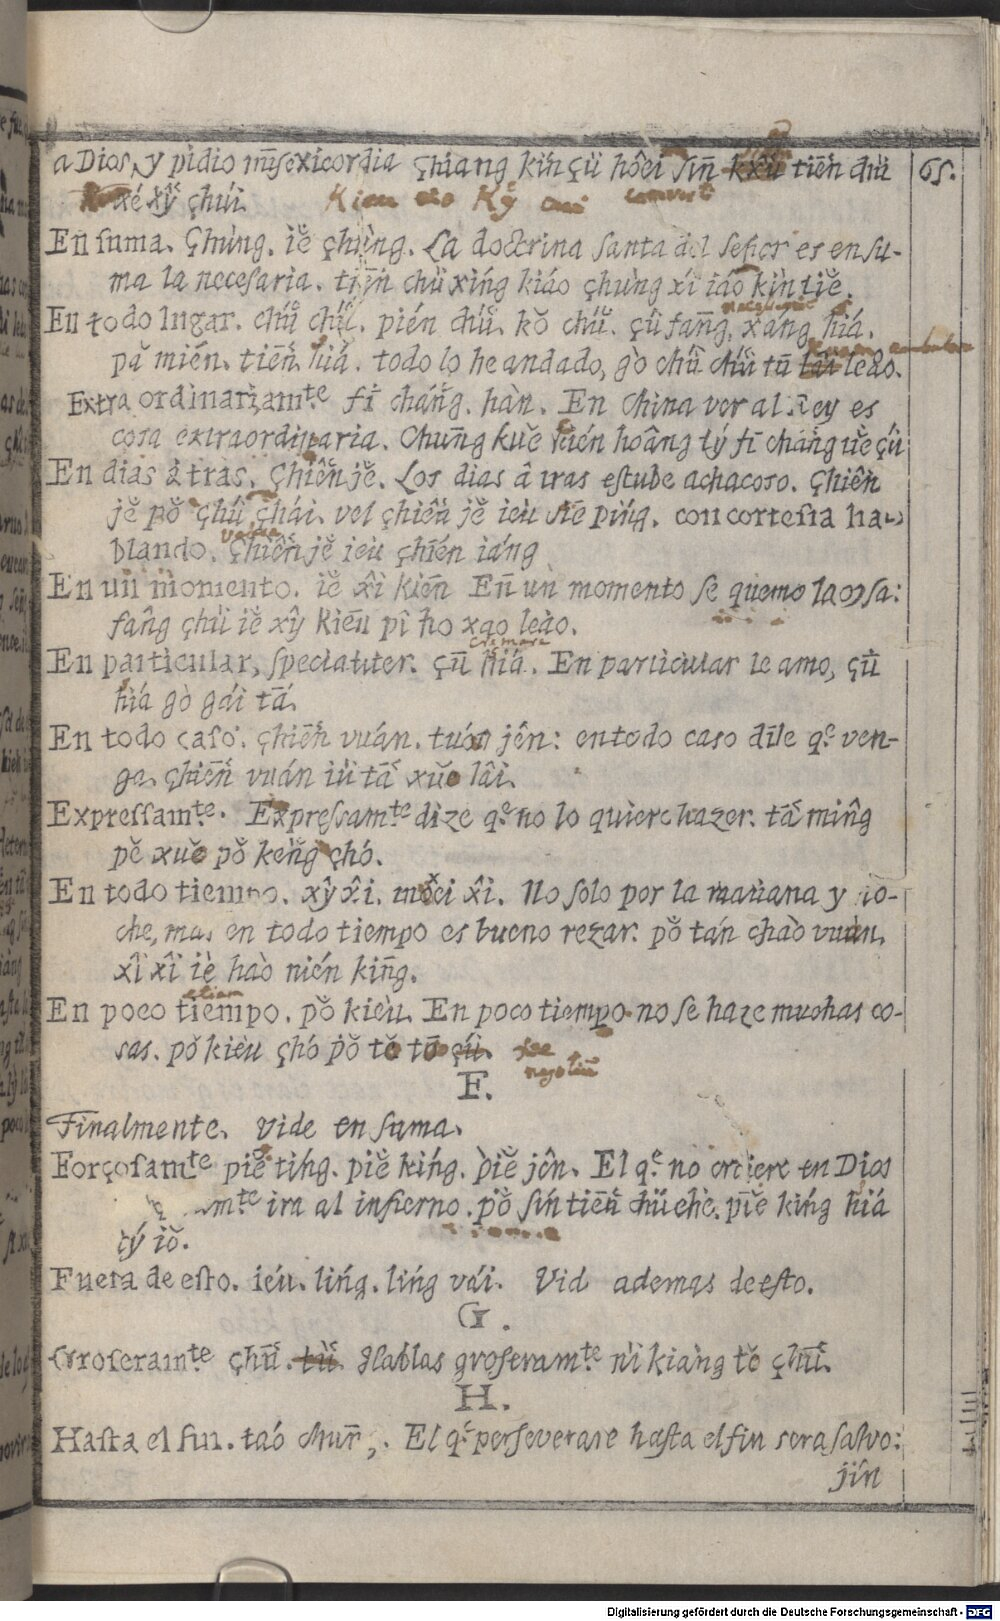 a Dios, y pidio misericordia çhiang kín çù hôei sin̄ tien̄ chù 65.
xé xŷ çhúi.
En suma. Çhùng. iĕ çhùng. La doctrina santa del señor es en su-
ma la necesaria. tien̄ chù xíng kiáo çhùng xí iáo kìn tiĕ.
En todo lugar. chú chú. pién chú. kŏ chú. çú fan̄g, xáng hiá.
pă mién. tien̄ hiá. todo lo he andado, gò chú chú tū leào.
Extraordinariamte. fī chán̂g. hàn. En China ver al Rey es
cosa extraordinaria. Chun̄g kuĕ kién hoâng tý fī chân̂g tiĕ çú
En dias âtras. Çhiên̂ jĕ. Los dias â tras estube achacoso. Çhiên̂
jĕ pŏ çhû çhái. vel çhiên̂ jĕ ièu siē píńg. con cortesia ha-
blando. Çhiên̂ jĕ ièu çhién iáng
En un momento. iĕ xî kien̄ En un momento se quemo la casa:
fan̂g çhù iĕ xŷ kien̄ pî hò xao leào.
En particular, specialiter. çū hiá. En particular le amo, çū
hiá gò gái tā.
En todo caso. çhien̄ vuán. tuón jên: en todo caso dile qe. ven-
ga. çhien̄ vuán iù tā xuĕ lâi.
Expressamte. Expressamte dize qe. no lo quiere hazer. tā min̂g
pĕ xuĕ pŏ kèn̆g çhó.
En todo tiempo. xŷ xî. mòei xî. No solo por la mañana y no-
che, mas en todo tiempo es bueno rezar. pŏ tán chào vuàn,
xî xî iè haò nién kin̄g.
En poco tiempo. pŏ kièu. En poco tiempo no se haze muchas co-
sas. pŏ kièu çhó pŏ tĕ tō
F.
Finalmente. vide en suma.
Forçosamte piĕ tińg. piĕ kińg. piĕ jên. El qe. no creiere en Dios
mte ira al infierno. pŏ sín tien̄ chù chè. piĕ kińg hiá
tý iŏ.
Fuera de esto. ièu. lińg. lińg vái. Vid ademas de esto.
G.
Groseramte çhū. Hablas groseramte. nì kiàng tĕ çhū.
H.
Hasta el fin. taó chun̄g. El qe perseverare hasta el fin sera salvo:
jín
Digitalisierung gefördert durch die Deutsche Forschungsgemeinschaft - DFG